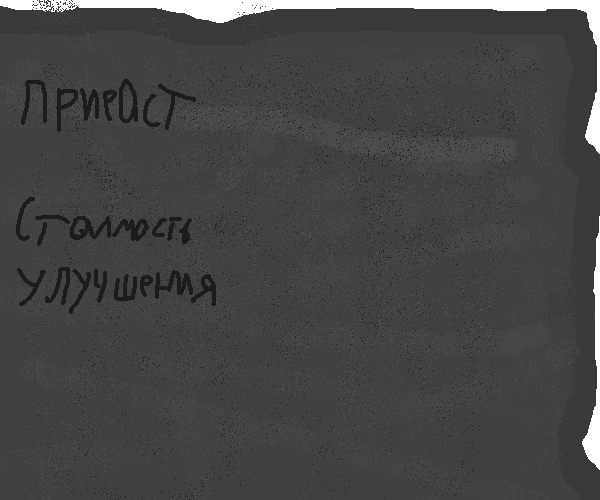 Прираст
Стоимость
улучшения